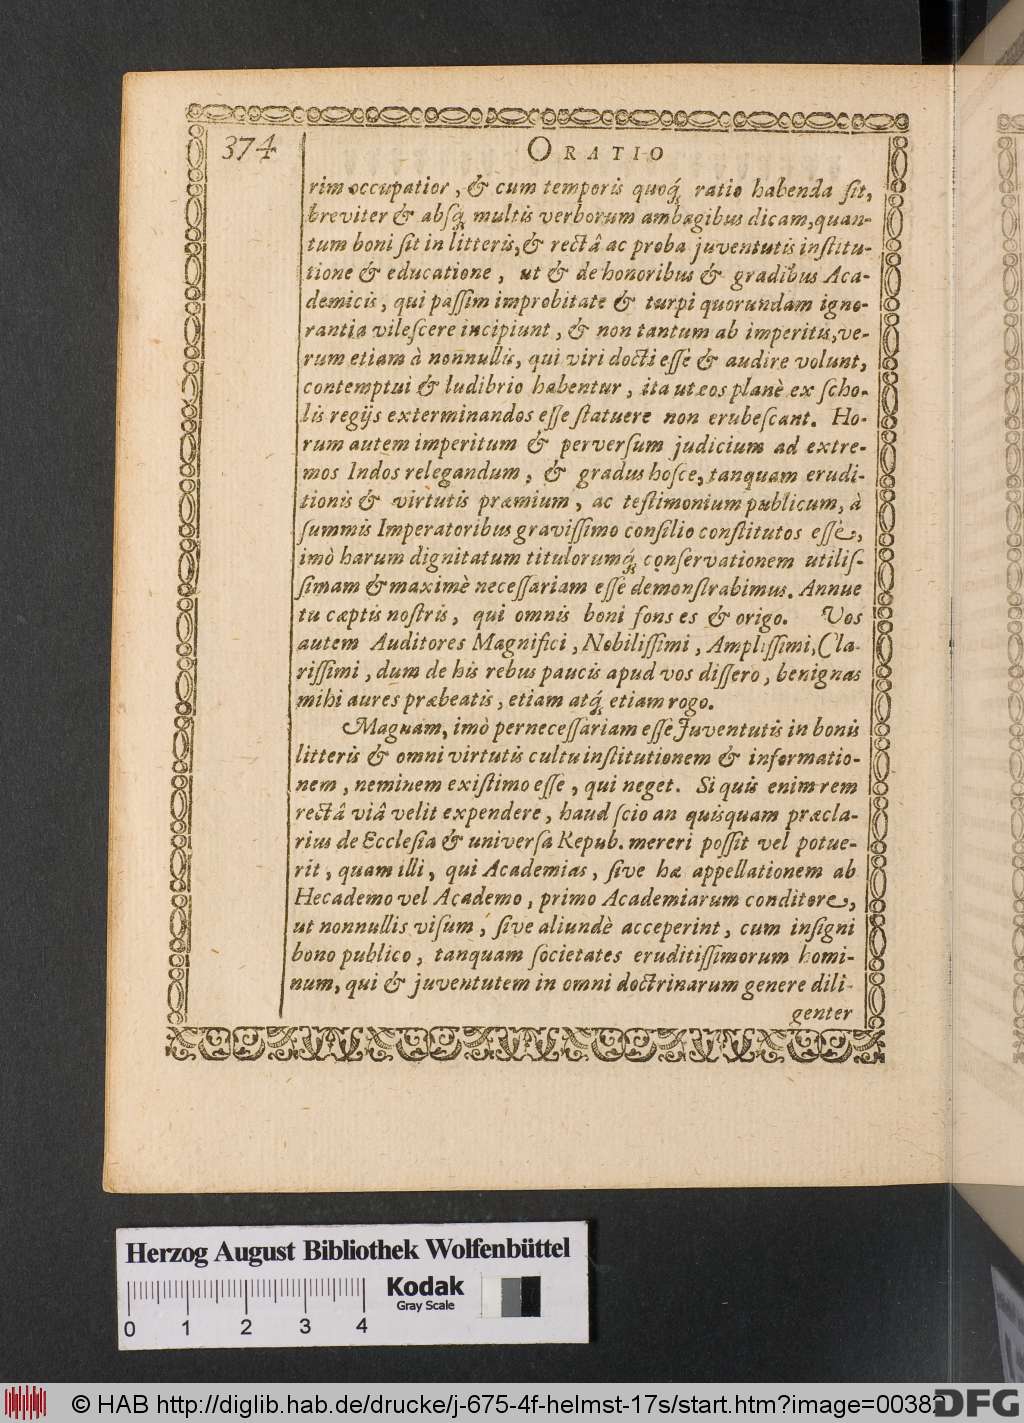 374
ORATIO
rim occupatior, & cum temporis quoq́; ratio habenda ſit,
breviter & abſq́; multis verborum ambagibus dicam, quan-
tum boni ſit in litteris, & rectâ ac proba juventutis inſtitu-
tione & educatione, ut & de honoribus & gradibus Aca-
demicis, qui paſſim improbitate & turpi quorundam igno-
rantia vileſcere incipiunt, & non tantum ab imperitis, ve-
rum etiam à nonnullis, qui viri docti eſſe & audire volunt,
contemptui & ludibrio habentur, ita ut eos planè ex ſcho-
lis regijs exterminandos eſſe ſtatuere non erubeſcant. Ho-
rum autem imperitum & perverſum judicium ad extre-
mos Indos relegandum, & gradus hoſce, tanquam erudi-
tionis & virtutis præmium, ac teſtimonium publicum, à
ſummis Imperatoribus graviſſimo conſilio conſtitutos eſſe,
imò harum dignitatum titulorumq́; conſervationem utiliſ-
ſimam & maximè neceſſariam eſſe demonſtrabimus. Annue
tu cæptis noſtris, qui omnis boni fons es & origo. Vos
autem Auditores Magnifici, Nobiliſſimi, Ampliſſimi, Cla-
riſſimi, dum de his rebus paucis apud vos diſſero, benignas
mihi aures præbeatis, etiam atq́; etiam rogo.
Magnam, imò perneceſſariam eſſe Juventutis in bonis
litteris & omni virtutis cultu inſtitutionem & informatio-
nem, neminem exiſtimo eſſe, qui neget. Si quis enim rem
rectâ viâ velit expendere, haud ſcio an quisquam præcla-
rius de Eccleſia & univerſa Repub. mereri poſſit vel potue-
rit, quam illi, qui Academias, ſive hæ appellationem ab
Hecademo vel Academo, primo Academiarum conditore,
ut nonnullis viſum, ſive aliundè acceperint, cum inſigni
bono publico, tanquam ſocietates eruditiſſimorum homi-
num, qui & juventutem in omni doctrinarum genere dili-
genter
Herzog August Bibliothek Wolfenbüttel
Kodak
Gray Scale
0 1 2 3 4
© HAB http://diglib.hab.de/drucke/j-675-4f-helmst-17s/start.htm?image=00382
DFG